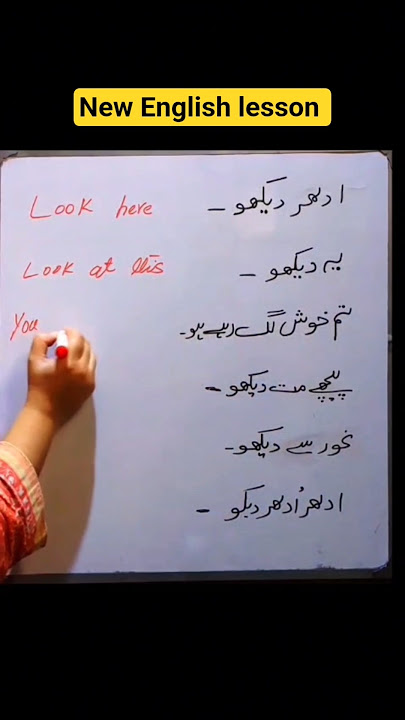 New English lesson
Look here ادھر دیکھو ۔
Look at this یہ دیکھو ۔
You تم خوش لگ رہے ہو۔
پیچھے مت دیکھو ۔
غور سے دیکھو۔
ادھر اُدھر دیکھو ۔